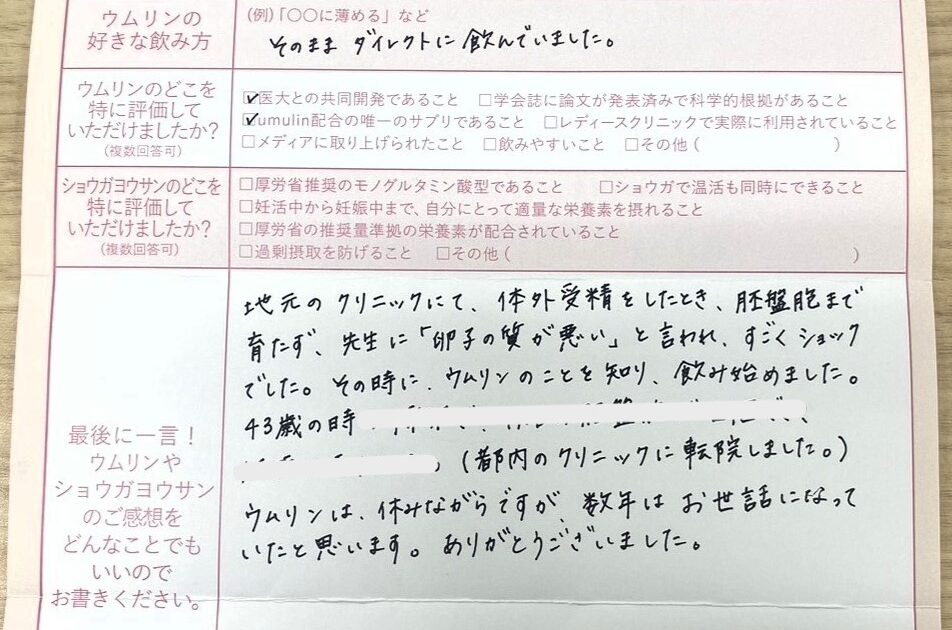 ウムリンの
好きな飲み方
(例)「〇〇に薄める」など
そのまま ダイレクトに 飲んでいました。
ウムリンのどこを
特に評価して
いただけましたか?
(複数回答可)
☑医大との共同開発であること □学会誌に論文が発表済みで科学的根拠があること
☑umulin配合の唯一のサプリであること □レディースクリニックで実際に利用されていること
□メディアに取り上げられたこと □飲みやすいこと □その他 ( )
ショウガヨウサンのどこを
特に評価して
いただけましたか?
(複数回答可)
□厚労省推奨のモノグルタミン酸型であること □ショウガで温活も同時にできること
□妊活中から妊娠中まで、自分にとって適量な栄養素を摂れること
□厚労省の推奨量準拠の栄養素が配合されていること
□過剰摂取を防げること □その他 ( )
最後に一言!
ウムリンや
ショウガヨウサン
のご感想を
どんなことでも
いいので
お書きください。
地元の クリニックにて、体外受精をしたとき、胚盤胞まで
育たず、先生に「卵子の質が悪い」と言われ、すごくショック
でした。その時に、ウムリンのことを知り、飲み始めました。
43歳の時
(都内のクリニックに転院しました。)
ウムリンは、休みながらですが、数年は お世話になって
いたと思います。ありがとうございました。